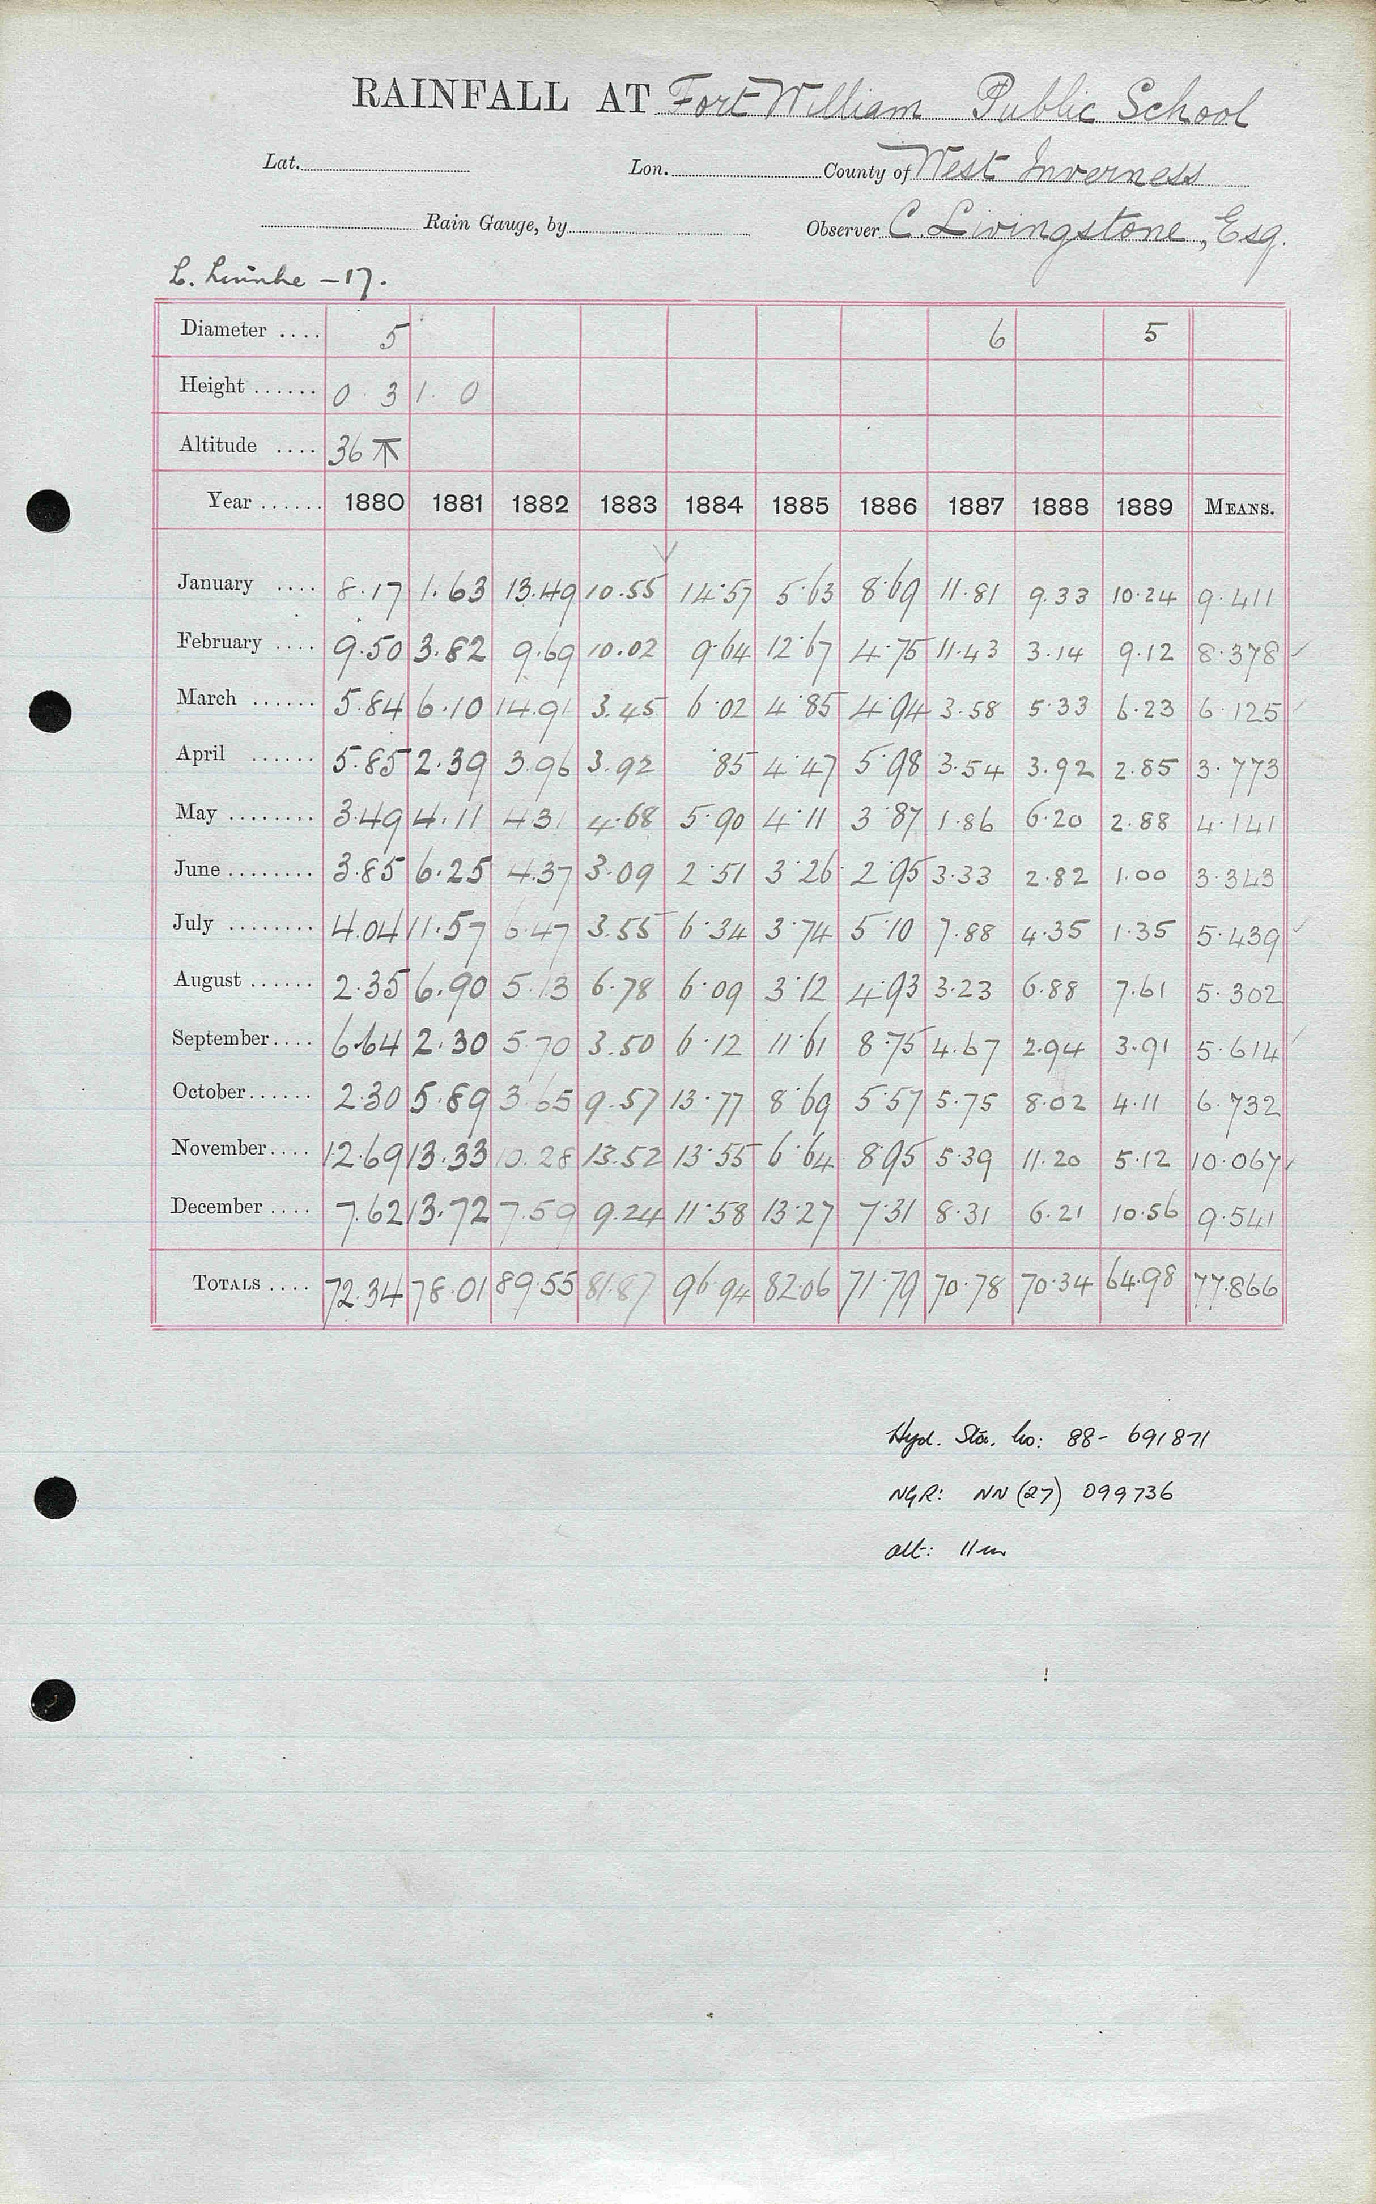 RAINFALL AT Fort William Public School
Lat. Lon. County of West Inverness
Rain Gauge, by Observer C. Livingstone, Esq.
L. Linnhe - 17.
Diameter .... 5 6 5
Height ...... 0 . 3 1. 0
Altitude .... 36
Year ...... 1880 1881 1882 1883 1884 1885 1886 1887 1888 1889 MEANS.
January .... 8.17 1.63 13.49 10.55 14.57 5.63 8.69 11.81 9.33 10.24 9.411
February .... 9.50 3.82 9.69 10.02 9.64 12.67 4.75 11.43 3.14 9.12 8.378
March ...... 5.84 6.10 14.91 3.45 6.02 4.85 4.94 3.58 5.33 6.23 6.125
April ...... 5.85 2.39 3.96 3.92 .85 4.47 5.98 3.54 3.92 2.85 3.773
May ........ 3.49 4.11 4.31 4.68 5.90 4.11 3.87 1.86 6.20 2.88 4.141
June ........ 3.85 6.25 4.37 3.09 2.51 3.26 2.95 3.33 2.82 1.00 3.343
July ........ 4.04 11.57 6.47 3.55 6.34 3.74 5.10 7.88 4.35 1.35 5.439
August ...... 2.35 6.90 5.13 6.78 6.09 3.12 4.93 3.23 6.88 7.61 5.302
September.... 6.64 2.30 5.70 3.50 6.12 11.61 8.75 4.67 2.94 3.91 5.614
October...... 2.30 5.89 3.65 9.57 13.77 8.69 5.57 5.75 8.02 4.11 6.732
November.... 12.69 13.33 10.28 13.52 13.55 6.64 8.95 5.39 11.20 5.12 10.067
December .... 7.62 13.72 7.59 9.24 11.58 13.27 7.31 8.31 6.21 10.56 9.541
TOTALS .... 72.34 78.01 89.55 81.87 96.94 82.06 71.79 70.78 70.34 64.98 77.866
Hyd. Sta. No: 88- 691871
NGR: NN (27) 099736
alt: 11m